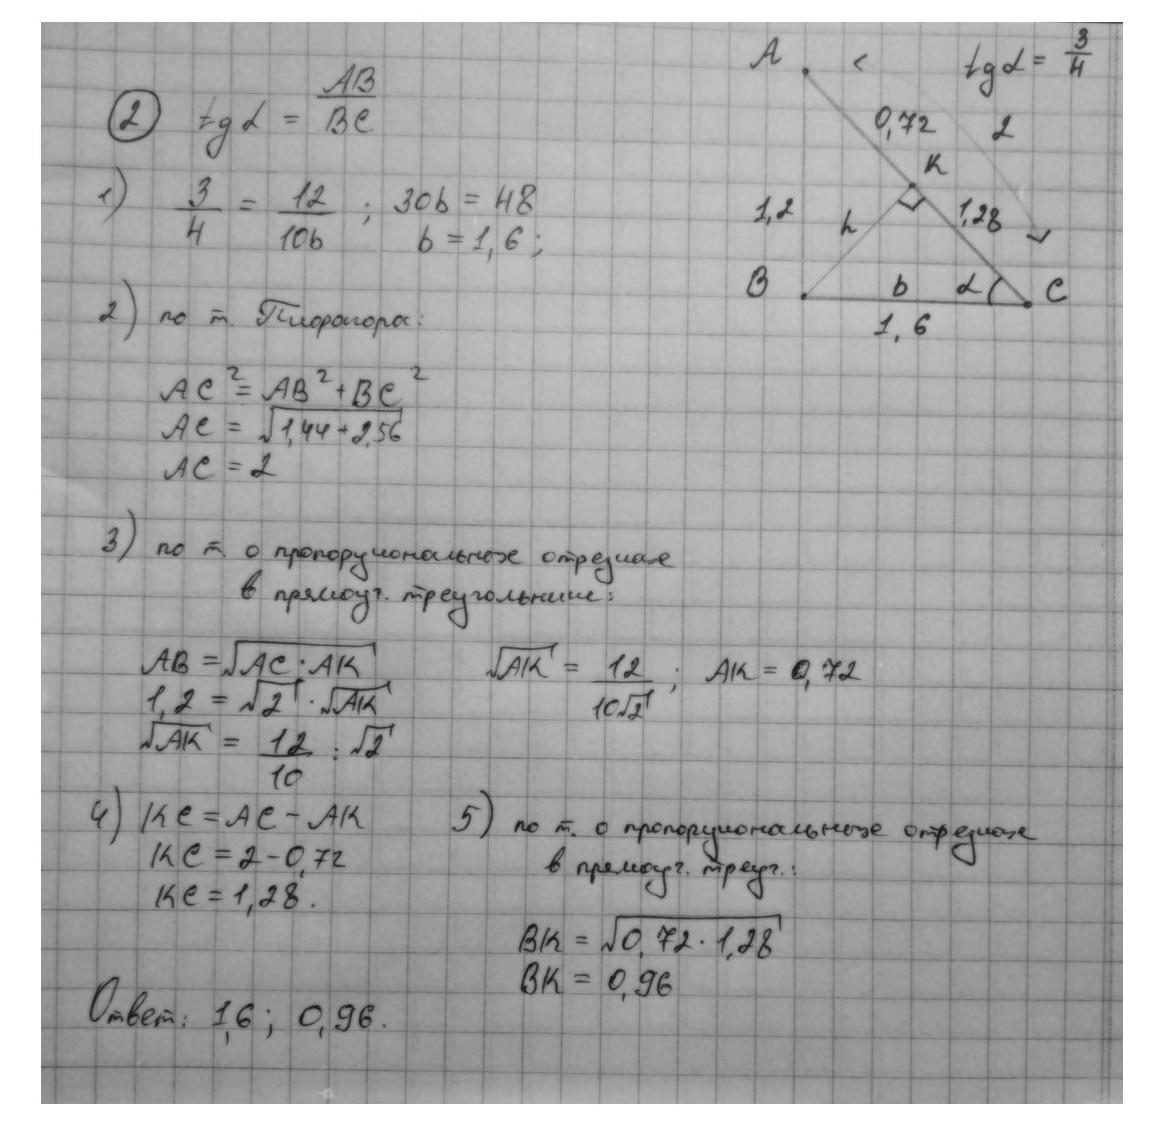 2 tg α = AB/BC
1) 3/4 = 12/10b ; 30b = 48
b = 1,6 ;
2) по т. Пифагора:
AC² = AB² + BC²
AC = √1,44 + 2,56
AC = 2
3) по т. о пропорциональных отрезках
в прямоуг. треугольнике:
AB = √AC · AK
1,2 = √2 · √AK
√AK = 12/10 : √2
√AK = 12/10√2 ; AK = 0,72
4) KC = AC - AK
KC = 2 - 0,72
KC = 1,28.
5) по т. о пропорциональных отрезках
в прямоуг. треуг.:
BK = √0,72 · 1,28
BK = 0,96
Ответ: 1,6 ; 0,96.
A
tg α = 3/4
0,72
2
K
1,2
h
1,28
B
b
α
C
1,6